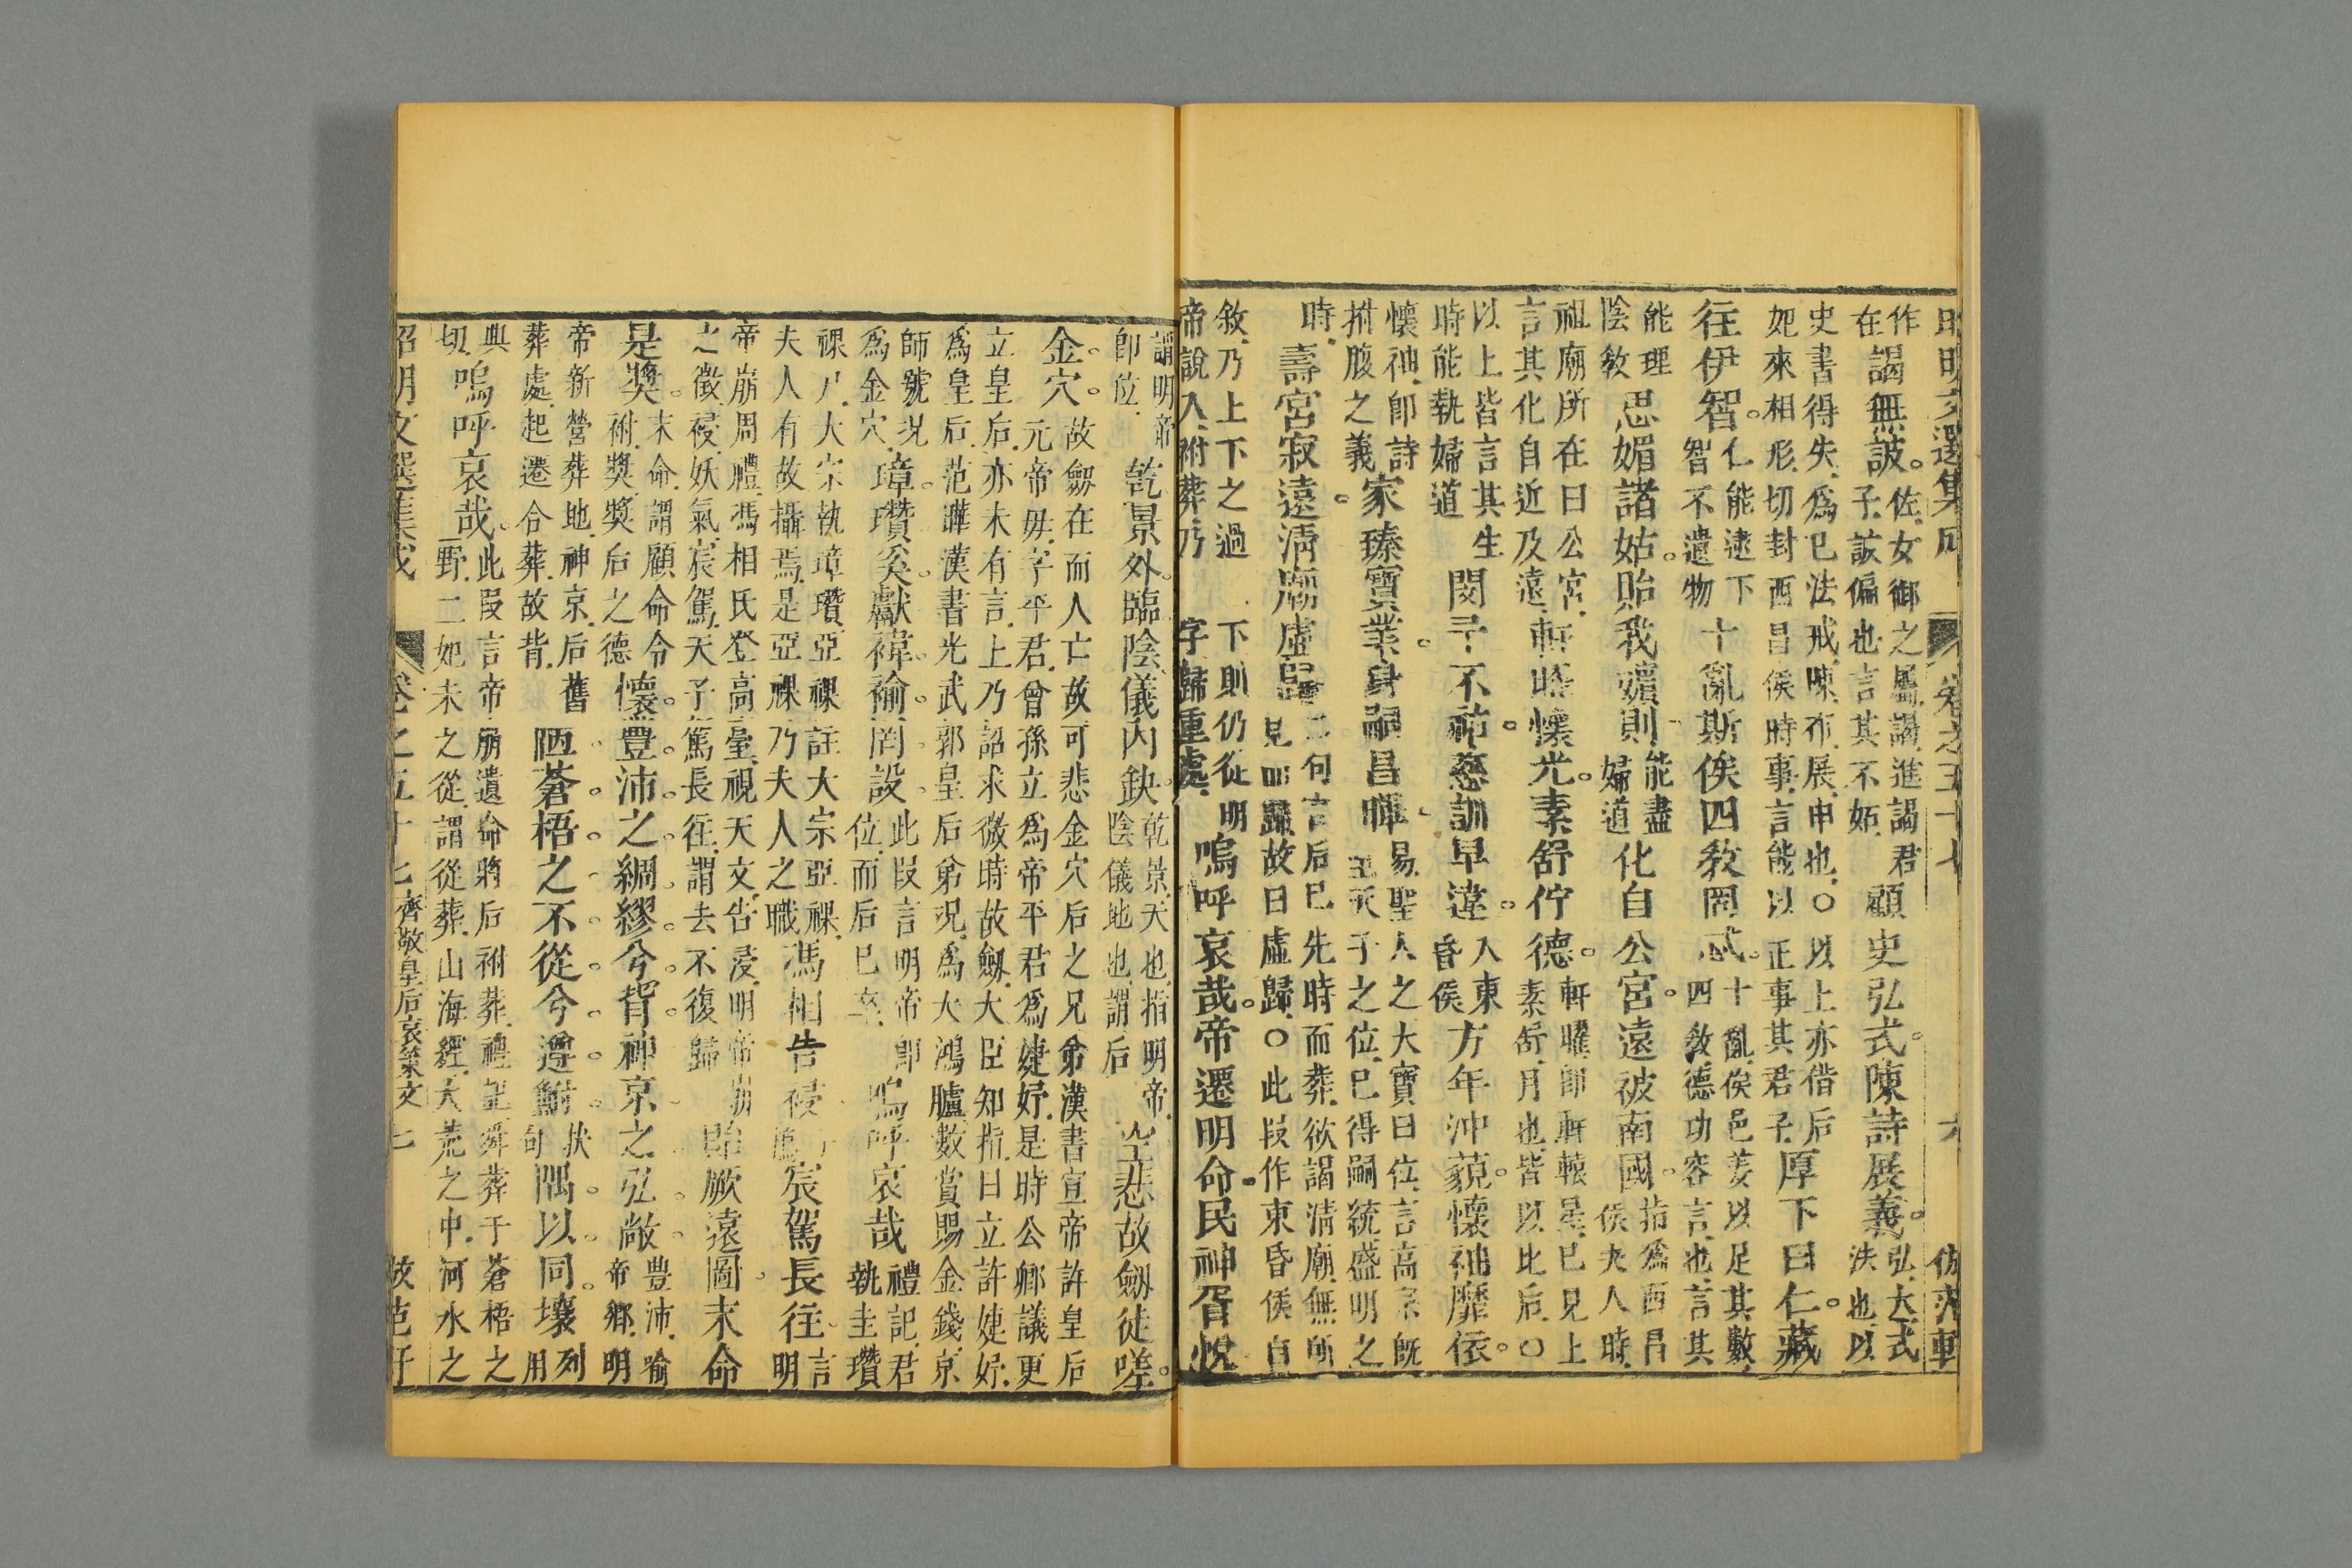 昭明文選集成 卷之五十七 六 倣范軒
作
在
謁無詖。
佐女御之屬謁進謁君
子詖偏也言其不妬
顧史弘式。陳詩展義。
弘大式
法也以
史書得失為已法戒陳布展申也○以上亦借后
妃來相形切封西昌侯時事言能以正事其君子
厚下曰仁。藏
往伊智。
仁能逮下
智不遺物
十亂斯俟四敎罔忒。
十亂俟邑姜以足其數
四敎德功容言也言其
能理
陰敎
思媚諸姑。貽我嬪則
能盡
婦道
化自公宮。遠被南國。
指為西昌
侯夫人時
祖廟所在曰公宮
言其化自近及遠
軒曜懷光。素舒佇德。
軒曜即軒轅星已見上
素舒月也皆以比后○
以上皆言其生
時能執婦道
閔予不祐。慈訓早違。
入東
昏侯
方年沖藐。懷袖靡依。
懷袖即詩
拊腹之義
家臻寶業。身嗣昌暉。
易聖人之大寶曰位言高宗既
天子之位已得嗣統盛明之
時
壽宮寂遠。清廟虛歸
二句言后已先時而葬欲謁清廟無所
見而歸故曰虛歸○此段作東昏侯自
敘乃上下之過下則仍從明
帝說入祔葬乃字歸重處
嗚呼哀哉。帝遷明命。民神胥悅
謂明帝
即位
乾景外臨。陰儀內缺。
乾景天也指明帝
陰儀地也謂后
空悲故劔徒嗟。
金穴。
故劔在而人亡故可悲金穴后之兄弟漢書宣帝許皇后
元帝毋字平君曾孫立為帝平君為婕妤是時公卿議更
立皇后亦未有言上乃詔求微時故劔大臣知指曰立許婕妤
為皇后范曄漢書光武郭皇后弟況為大鴻臚數賞賜金錢京
師號況
為金穴
璋瓚奚獻。禕褕罔設。
此段言明帝即
位而后已卒
嗚呼哀哉
禮記君
執圭瓚
祼尸大宗執璋瓚亞祼註大宗亞祼
夫人有故攝焉是亞祼乃夫人之職
馮相告祲
宸駕長往。
言
明
帝崩周禮馮相氏登高臺視天文告祲明帝崩
之徵祲妖氣宸駕天子駕長往謂去不復歸
貽厥遠圖。末命
是獎。
末命謂顧命令
祔獎獎后之德
懷豐沛之綢繆兮。背神京之弘敞。
豐沛喻
帝鄉明
帝新營葬地神京后舊
葬處起遷合葬故背
陋蒼梧之不從兮。遵鮒
扶
句
隅以同壤。
列
用
典
切
嗚呼哀哉。
此段言帝崩遺命將后祔葬禮記舜葬于蒼梧之
野二妃未之從謂從葬山海經大荒之中河水之
昭明文選集成 卷之五十七 齊敬皇后哀策文 七 倣范軒